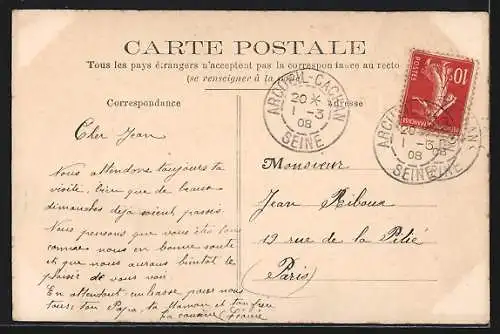 CARTE POSTALE
Tous les pays étrangers n'acceptent pas la correspondance au recto
(se renseigner à la poste)
Correspondance
Adresse
ARCUEIL-CACHAN
20 *
1 - 3
08
SEINE
10c
POSTES
ARCUEIL-CACHAN
20 *
1 - 3
08
SEINE
Cher Jean
Nous attendons toujours ta
visite, bien que de beaux
dimanches déja soient passés.
Nous pensons que vous êtes tous
comme nous en bonne santé
et que nous aurons bientôt le
plaisir de vous voir
En attendant embrasse pour nous
tous, ton Papa, ta Maman et ton frère
ta cousine
Monsieur
Jean Riboux
19 rue de la Pitié
Paris